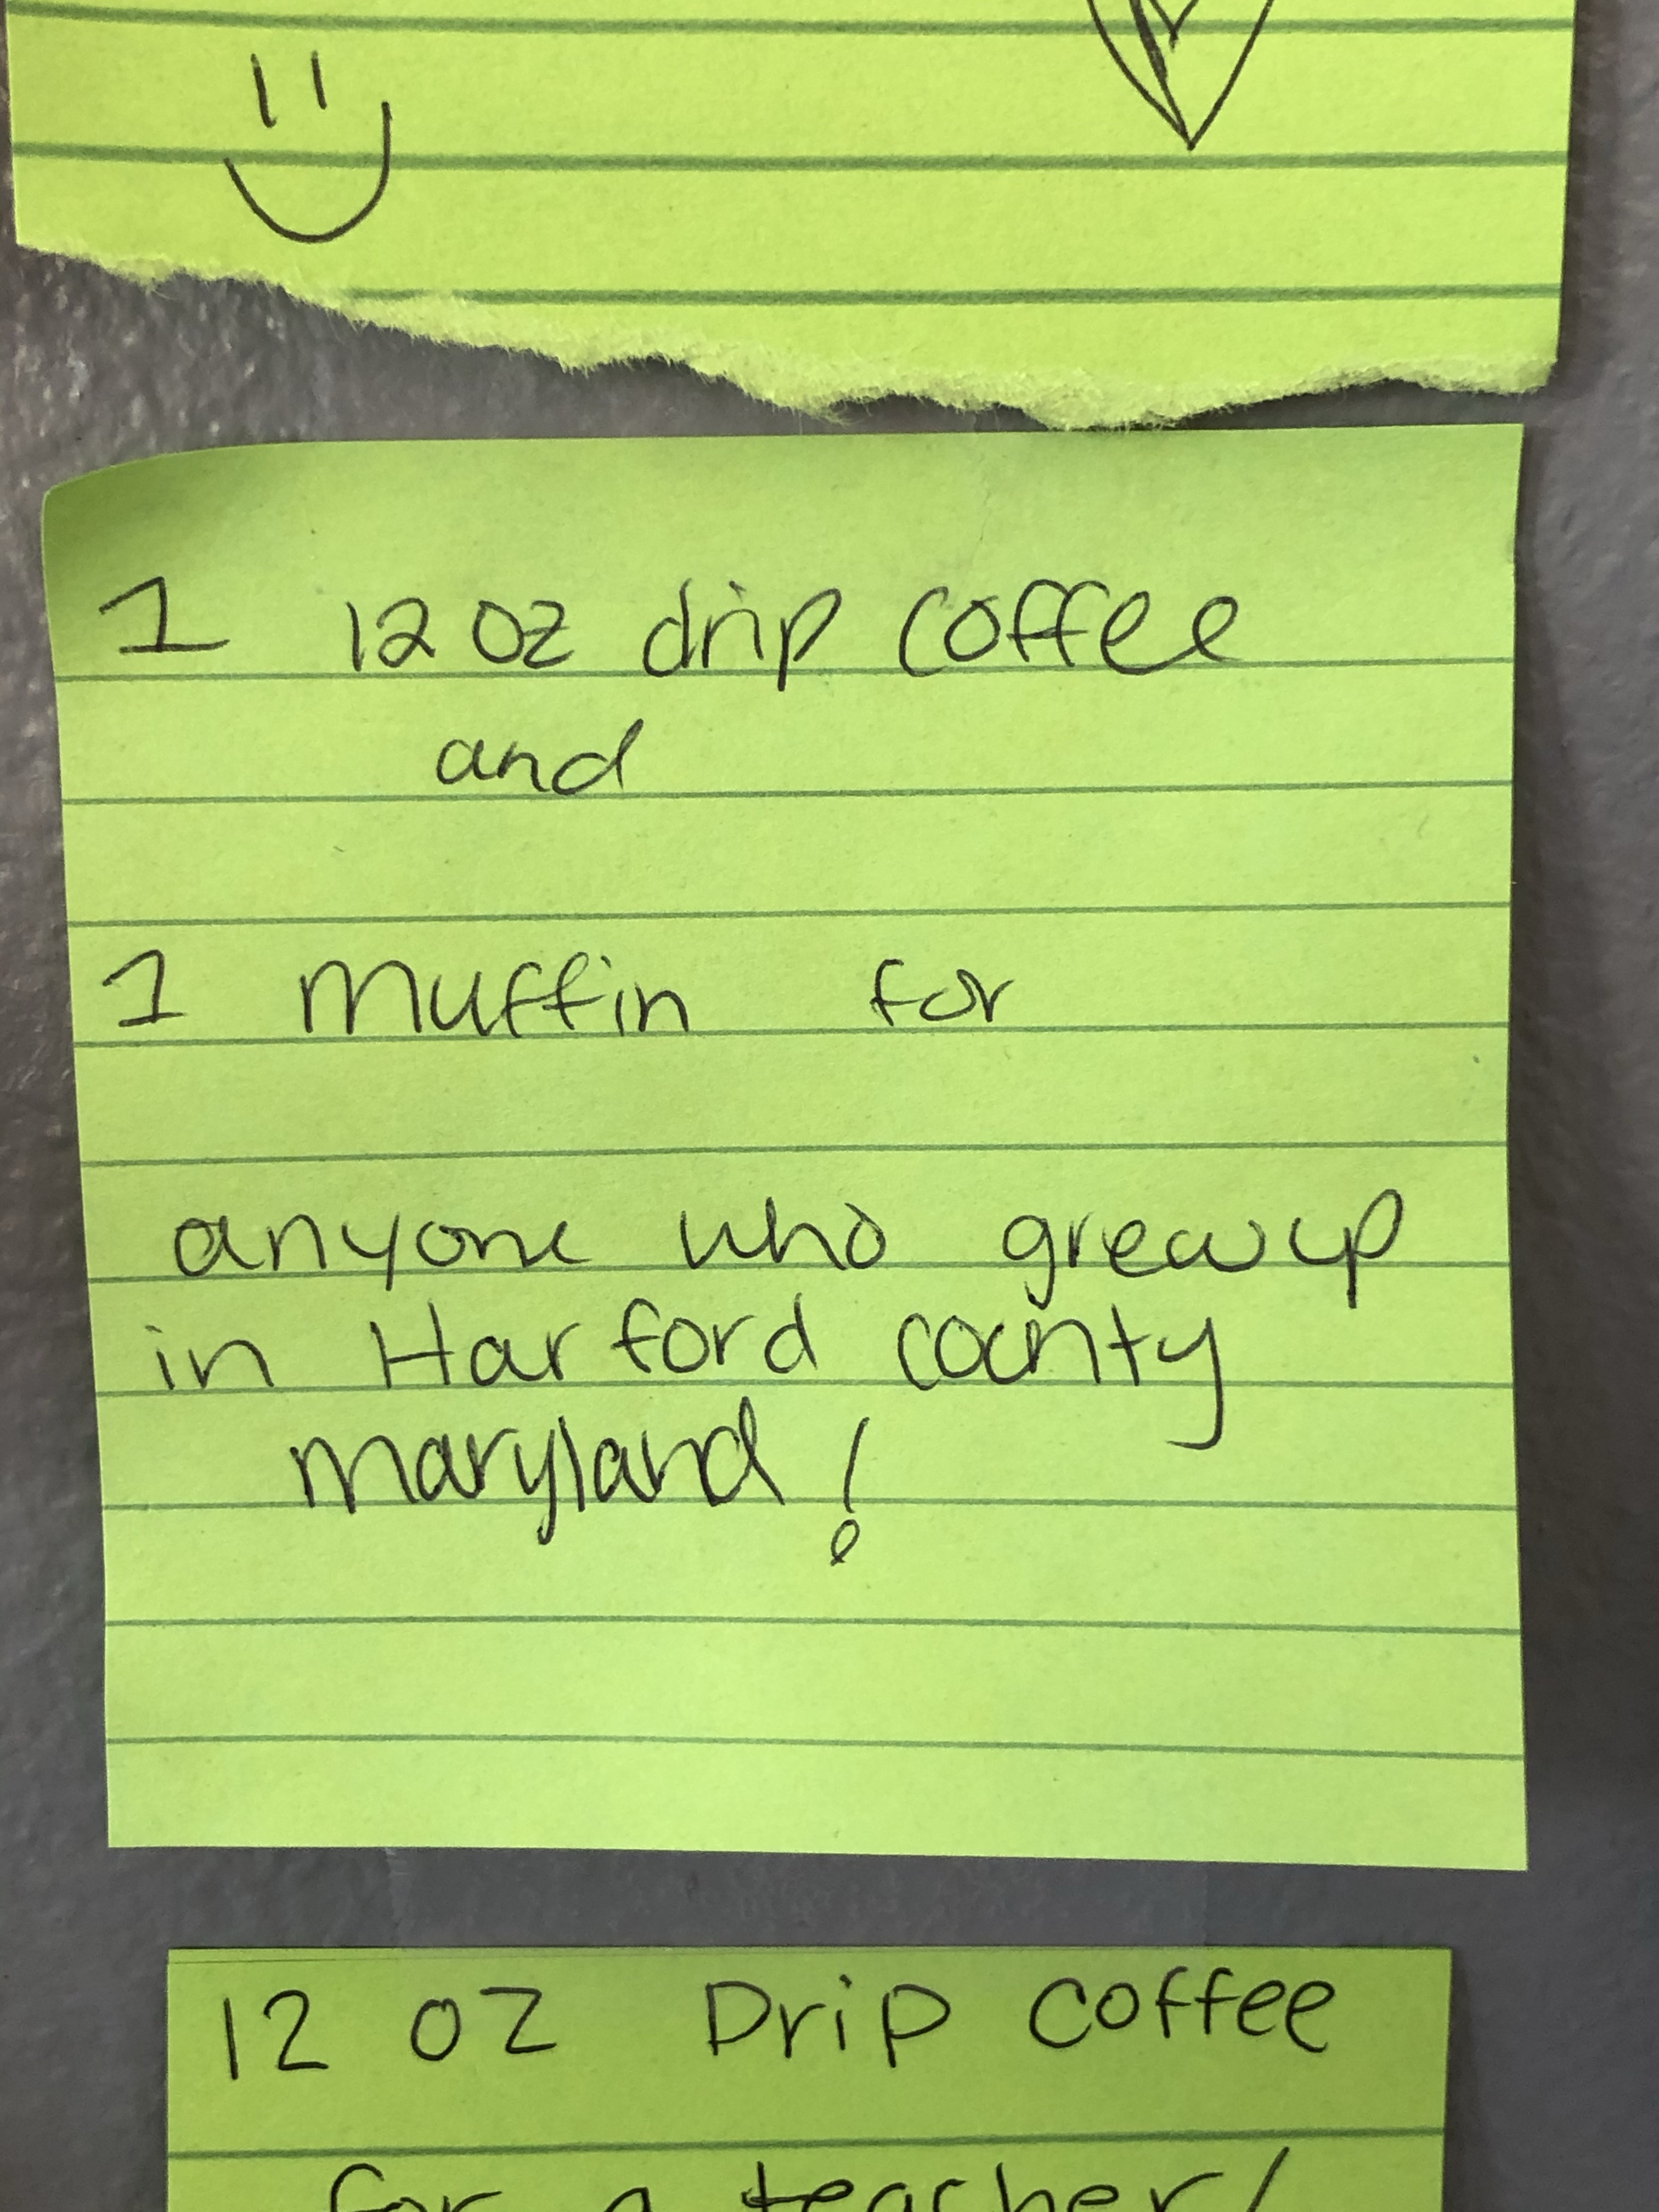 1 12 oz drip coffee
and
1 muffin for
anyone who grew up
in Harford county
maryland!
12 oz Drip coffee
for a teacher/